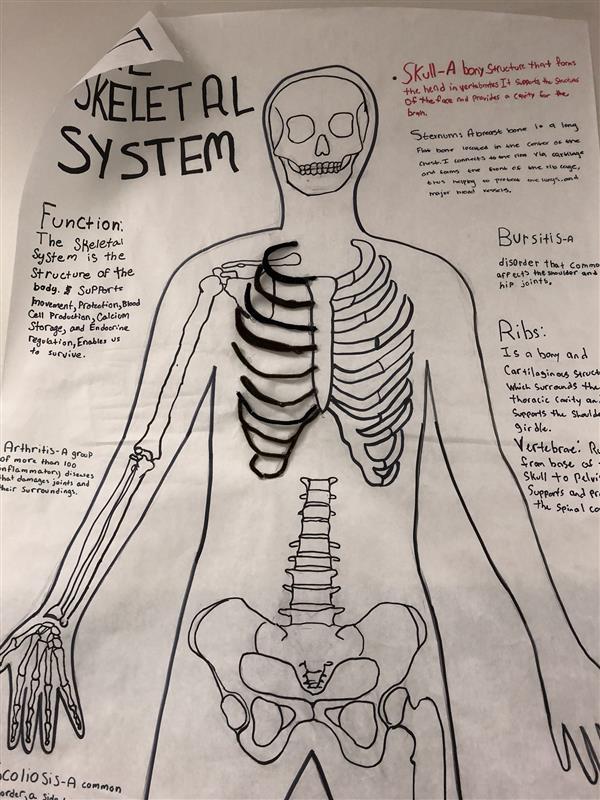 SKELETAL
SYSTEM
Function:
The Skeletal
System is the
Structure of the
body. It Supports
Movement, Protection, Blood
Cell Production, Calcium
Storage, and Endocrine
regulation, Enables us
to survive.
Arthritis-A group
of more than 100
inflammatory diseases
that damages joints and
their surroundings.
Scoliosis-A common
• Skull-A bony structure that forms
the head in vertebrates It supports the structures
Of the face and provides a cavity for the
brain.
Sternum: A breast bone is a long
flat bone located in the center of the
chest. I connects to the rim via cartilage
and forms the front of the rib cage,
thus helping to protect the lungs, and
major blood vessels.
Bursitis-A
disorder that common
affects the shoulder and
hip joints.
Ribs:
Is a bony and
Cartilaginous Struct
Which surrounds the
thoracic cavity an
Supports the Shoul
girdle.
Vertebrae: R
from base of
Skull to Pelvi
Supports and pr
the spinal co